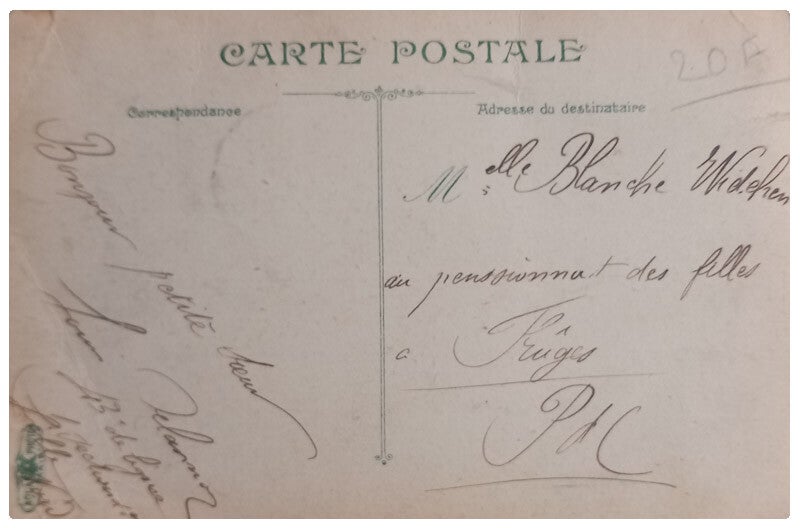 CARTE POSTALE
20F
Correspondance
Adresse du destinataire
Bonjour petite sœur
Delannoy
43e de ligne
Melle Blanche Widehen
au penssionnat des filles
a Frûges
PdC